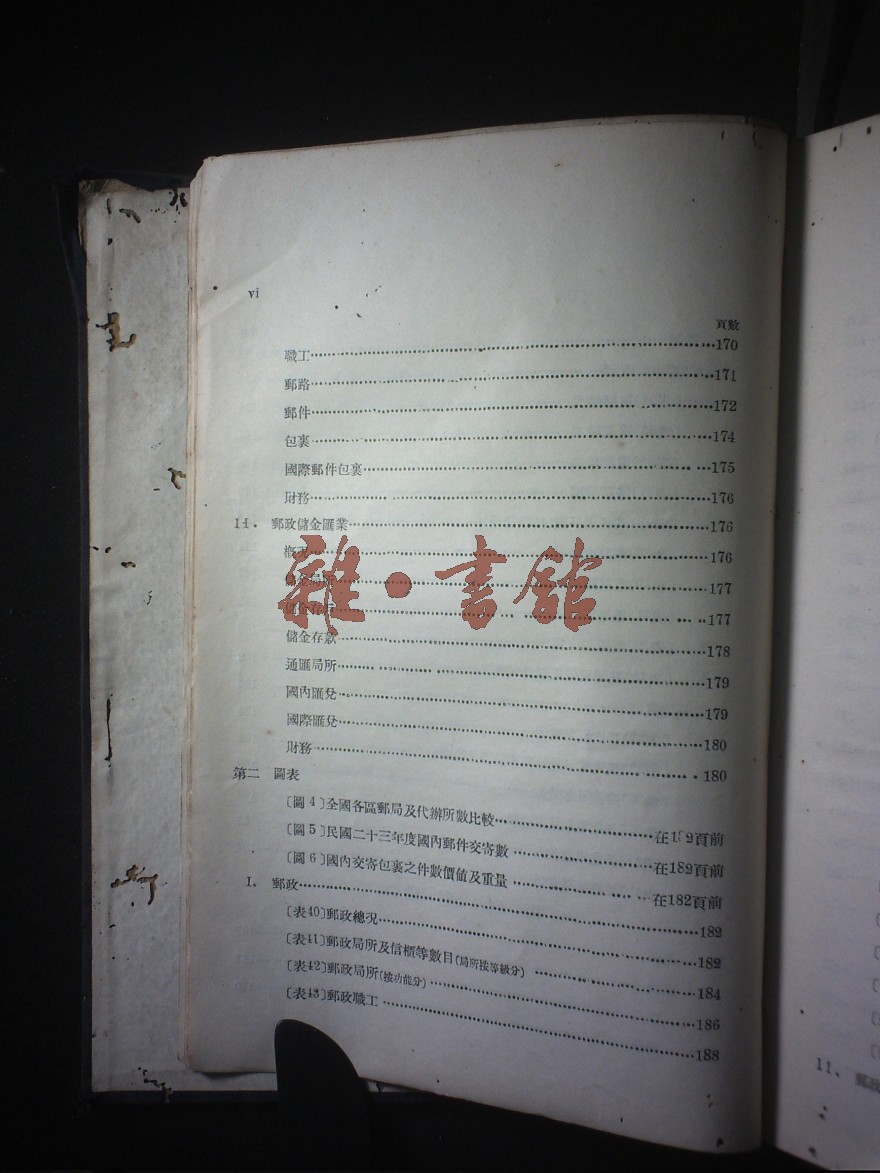 vi
頁數
職工 170
郵路 171
郵件 172
包裹 174
國際郵件包裹 175
財務 176
II. 郵政儲金匯業 176
概況 176
儲金局所 177
儲金存戶 177
儲金存款 178
通匯局所 179
國內匯兌 179
國際匯兌 180
財務 180
第二 圖表
〔圖4〕全國各區郵局及代辦所數比較 在182頁前
〔圖5〕民國二十三年度國內郵件交寄數 在182頁前
〔圖6〕國內交寄包裹之件數價值及重量 在182頁前
I. 郵政 182
〔表40〕郵政總況 182
〔表41〕郵政局所及信櫃等數目(局所按等級分) 184
〔表42〕郵政局所(按功能分) 186
〔表43〕郵政職工 188
雜·書館
11、郵政